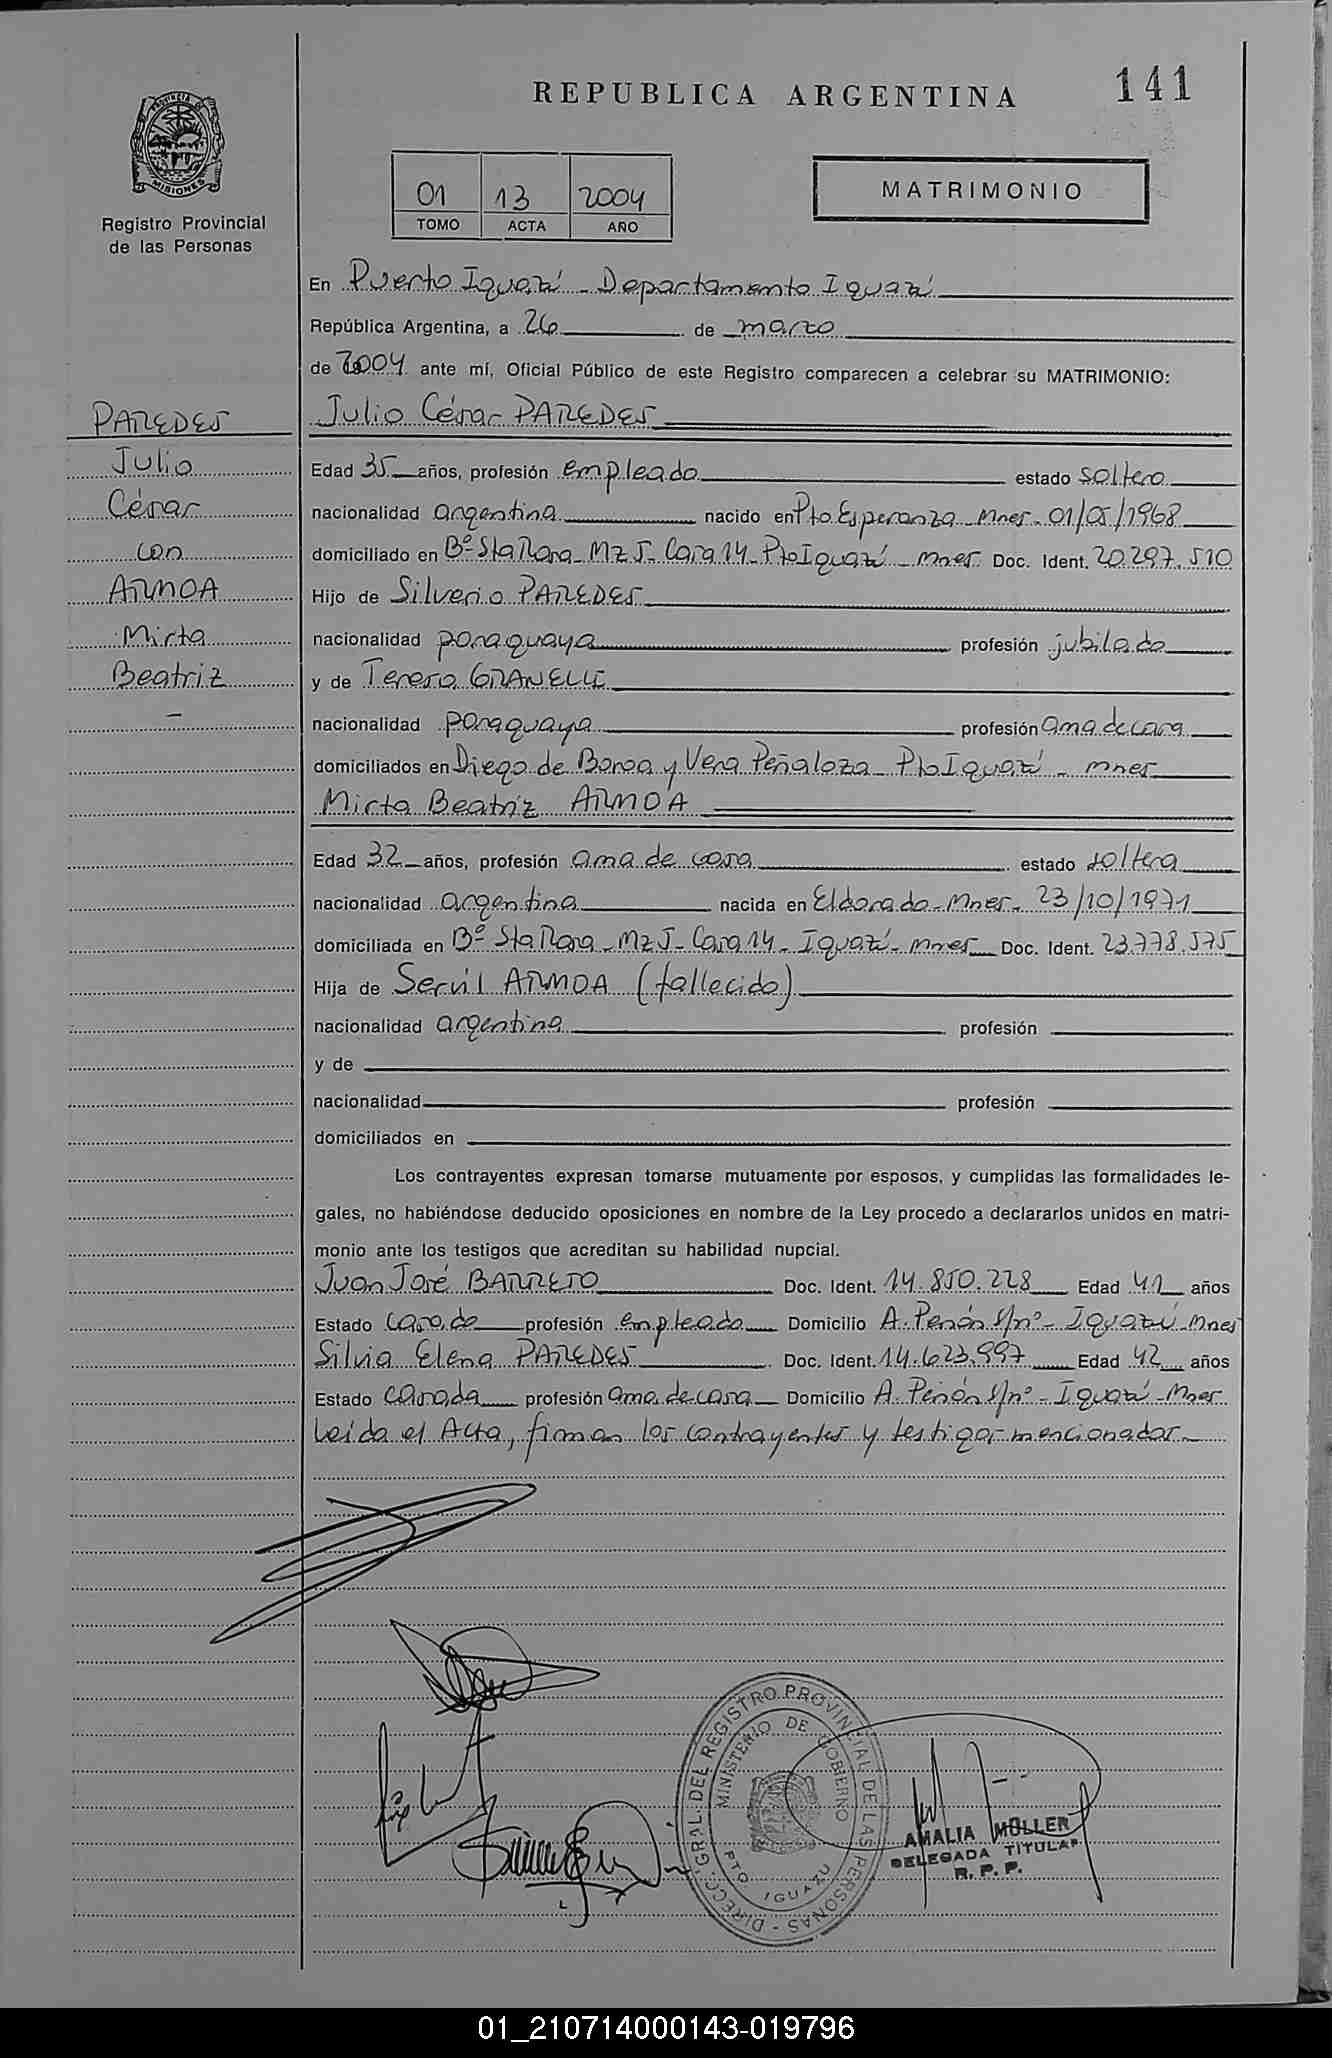 REPUBLICA ARGENTINA
141
PROVINCIA DE
MISIONES
Registro Provincial
de las Personas
01 13 2004
TOMO ACTA AÑO
MATRIMONIO
En Puerto Iguazú - Departamento Iguazú
República Argentina, a 26 de marzo
de 2004 ante mí, Oficial Público de este Registro comparecen a celebrar su MATRIMONIO:
PAREDES
Julio
César
con
ARMOA
Mirta
Beatriz
-
Julio César PAREDES
Edad 35 años, profesión empleado estado soltero
nacionalidad argentina nacido en Pto Esperanza - Mnes - 01/05/1968
domiciliado en Bº Sta Rosa - Mz J - Casa 14 - Pto Iguazú - Mnes Doc. Ident. 20.297.510
Hijo de Silverio PAREDES
nacionalidad paraguaya profesión jubilado
y de Teresa GRANELLI
nacionalidad paraguaya profesión ama de casa
domiciliados en Diego de Boroa y Vera Peñaloza - Pto Iguazú - Mnes
Mirta Beatriz ARMOA
Edad 32 años, profesión ama de casa estado soltera
nacionalidad argentina nacida en Eldorado - Mnes - 23/10/1971
domiciliada en Bº Sta Rosa - Mz J - Casa 14 - Iguazú - Mnes Doc. Ident. 23.778.575
Hija de Servil ARMOA (fallecido)
nacionalidad argentina profesión
y de
nacionalidad profesión
domiciliados en
Los contrayentes expresan tomarse mutuamente por esposos, y cumplidas las formalidades le-
gales, no habiéndose deducido oposiciones en nombre de la Ley procedo a declararlos unidos en matri-
monio ante los testigos que acreditan su habilidad nupcial.
Juan José BARRETO Doc. Ident. 14.850.228 Edad 41 años
Estado casado profesión empleado Domicilio A. Perón s/nº - Iguazú - Mnes
Silvia Elena PAREDES Doc. Ident. 14.623.997 Edad 42 años
Estado casada profesión ama de casa Domicilio A. Perón s/nº - Iguazú - Mnes
Leída el Acta, firman los contrayentes y testigos mencionados
DIRECC. GRAL. DEL REGISTRO PROVINCIAL DE LAS PERSONAS -
MINISTERIO DE GOBIERNO
PTO. IGUAZU
AMALIA MÜLLER
DELEGADA TITULAR
R. P. P.
01_210714000143-019796